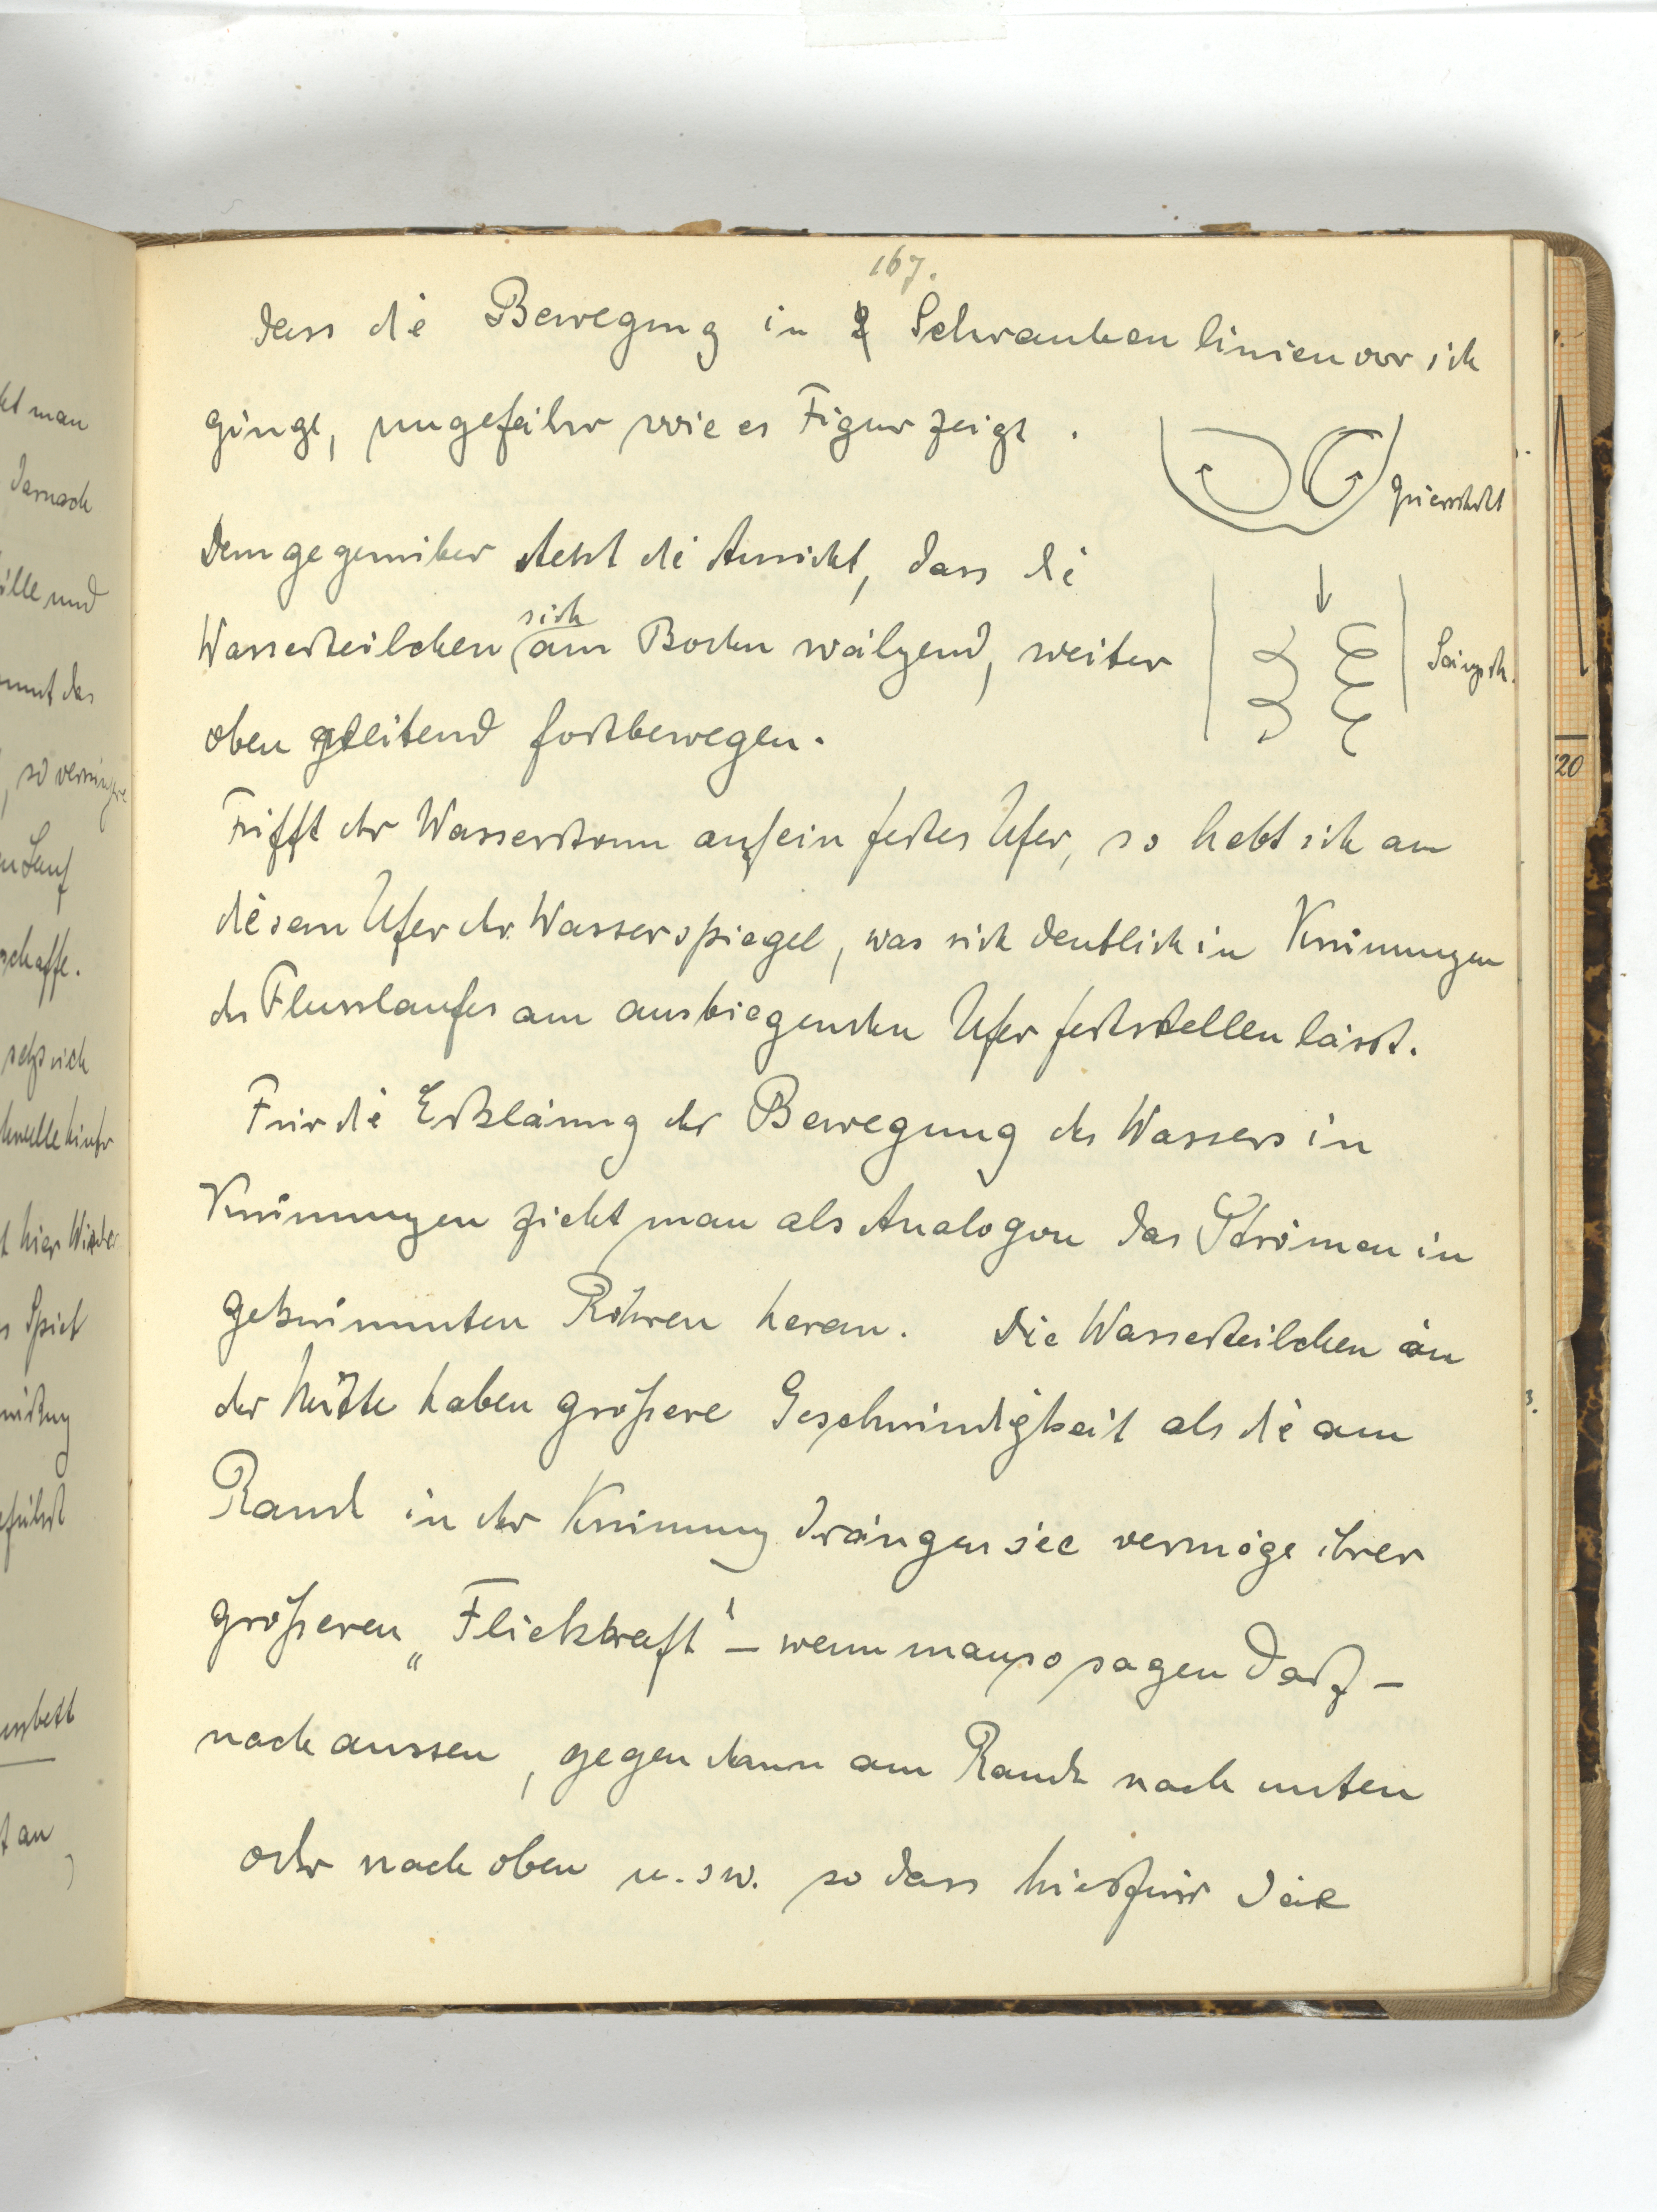 167.
dass die Bewegung in 2 Schraubenlinien vor sich
ginge, ungefähr wie es Figur zeigt.
Querschnitt
Demgegenüber steht die Ansicht, dass die
Wasserteilchen sich am Boden wälzend, weiter
Längsch.
oben gleitend fortbewegen.
Trifft der Wasserstrom auf ein festes Ufer, so hebt sich an
diesem Ufer der Wasserspiegel, was sich deutlich in Krümmungen
des Flusslaufes am ausbiegenden Ufer feststellen lässt.
Für die Erklärung der Bewegung des Wassers in
Krümmungen zieht man als Analogon das Strömen in
gekrümmten Röhren heran. Die Wasserteilchen in
der Mitte haben größere Geschwindigkeit als die am
Rand in der Krümmung drängen sie vermöge ihrer
größeren „Fliehkraft" – wenn man so sagen darf –
nach aussen, gegen dann am Rande nach unten
oder nach oben u.sw. so dass hierfür die
kt man
darnach
ille und
mmt das
n Lauf
schaffe.
setzt sich
t hier Wieder
s Spiel
führt
t an
20